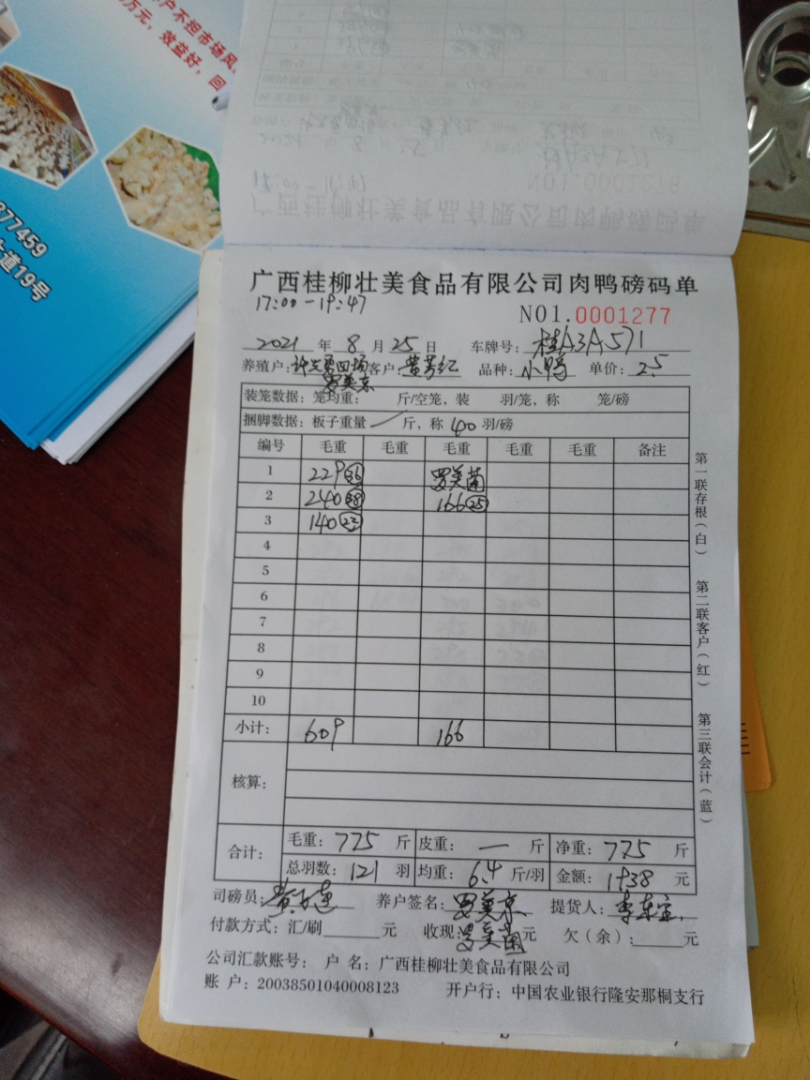 户不担市场风
万元，效益好，回
877459
大道19号
NO1.0001278
广西桂柳壮美食品有限公司肉鸭磅码单
广西桂柳壮美食品有限公司肉鸭磅码单
17:00-19:47
NO1.0001277
2021 年 8 月 25 日 车牌号: 桂A3A571
养殖户: 客户: 品种: 小鸭 单价: 2.5
罗美京
装笼数据: 笼均重: 斤/空笼, 装 羽/笼, 称 笼/磅
捆脚数据: 板子重量 — 斤, 称 40 羽/磅
编号 毛重 毛重 毛重 毛重 毛重 备注
1 229(36) 罗美菌
2 240(38) 166(25)
3 140(22)
4
5
6
7
8
9
10
小计: 609 166
核算:
合计: 毛重: 775 斤 皮重: — 斤 净重: 775 斤
总羽数: 121 羽 均重: 6.4 斤/羽 金额: 1938 元
司磅员: 养户签名: 罗美京 提货人:
付款方式: 汇/刷 元 收现: 罗美菌 元 欠(余): 元
公司汇款账号: 户 名: 广西桂柳壮美食品有限公司
账 户: 20038501040008123 开户行: 中国农业银行隆安那桐支行
第一联存根(白)
第二联客户(红)
第三联会计(蓝)